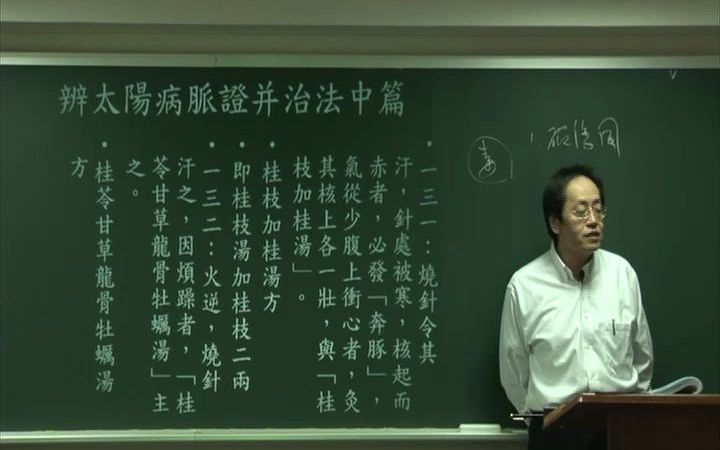 辨太陽病脈證并治法中篇
• 一三一：燒針令其
汗，針處被寒，核起而
赤者，必發「奔豚」，
氣從少腹上衝心者，灸
其核上各一壯，與「桂
枝加桂湯」。
• 桂枝加桂湯方
• 即桂枝湯加桂枝二兩
• 一三二：火逆，燒針
汗之，因煩躁者，「桂
苓甘草龍骨牡蠣湯」主
之。
• 桂苓甘草龍骨牡蠣湯
方
1.